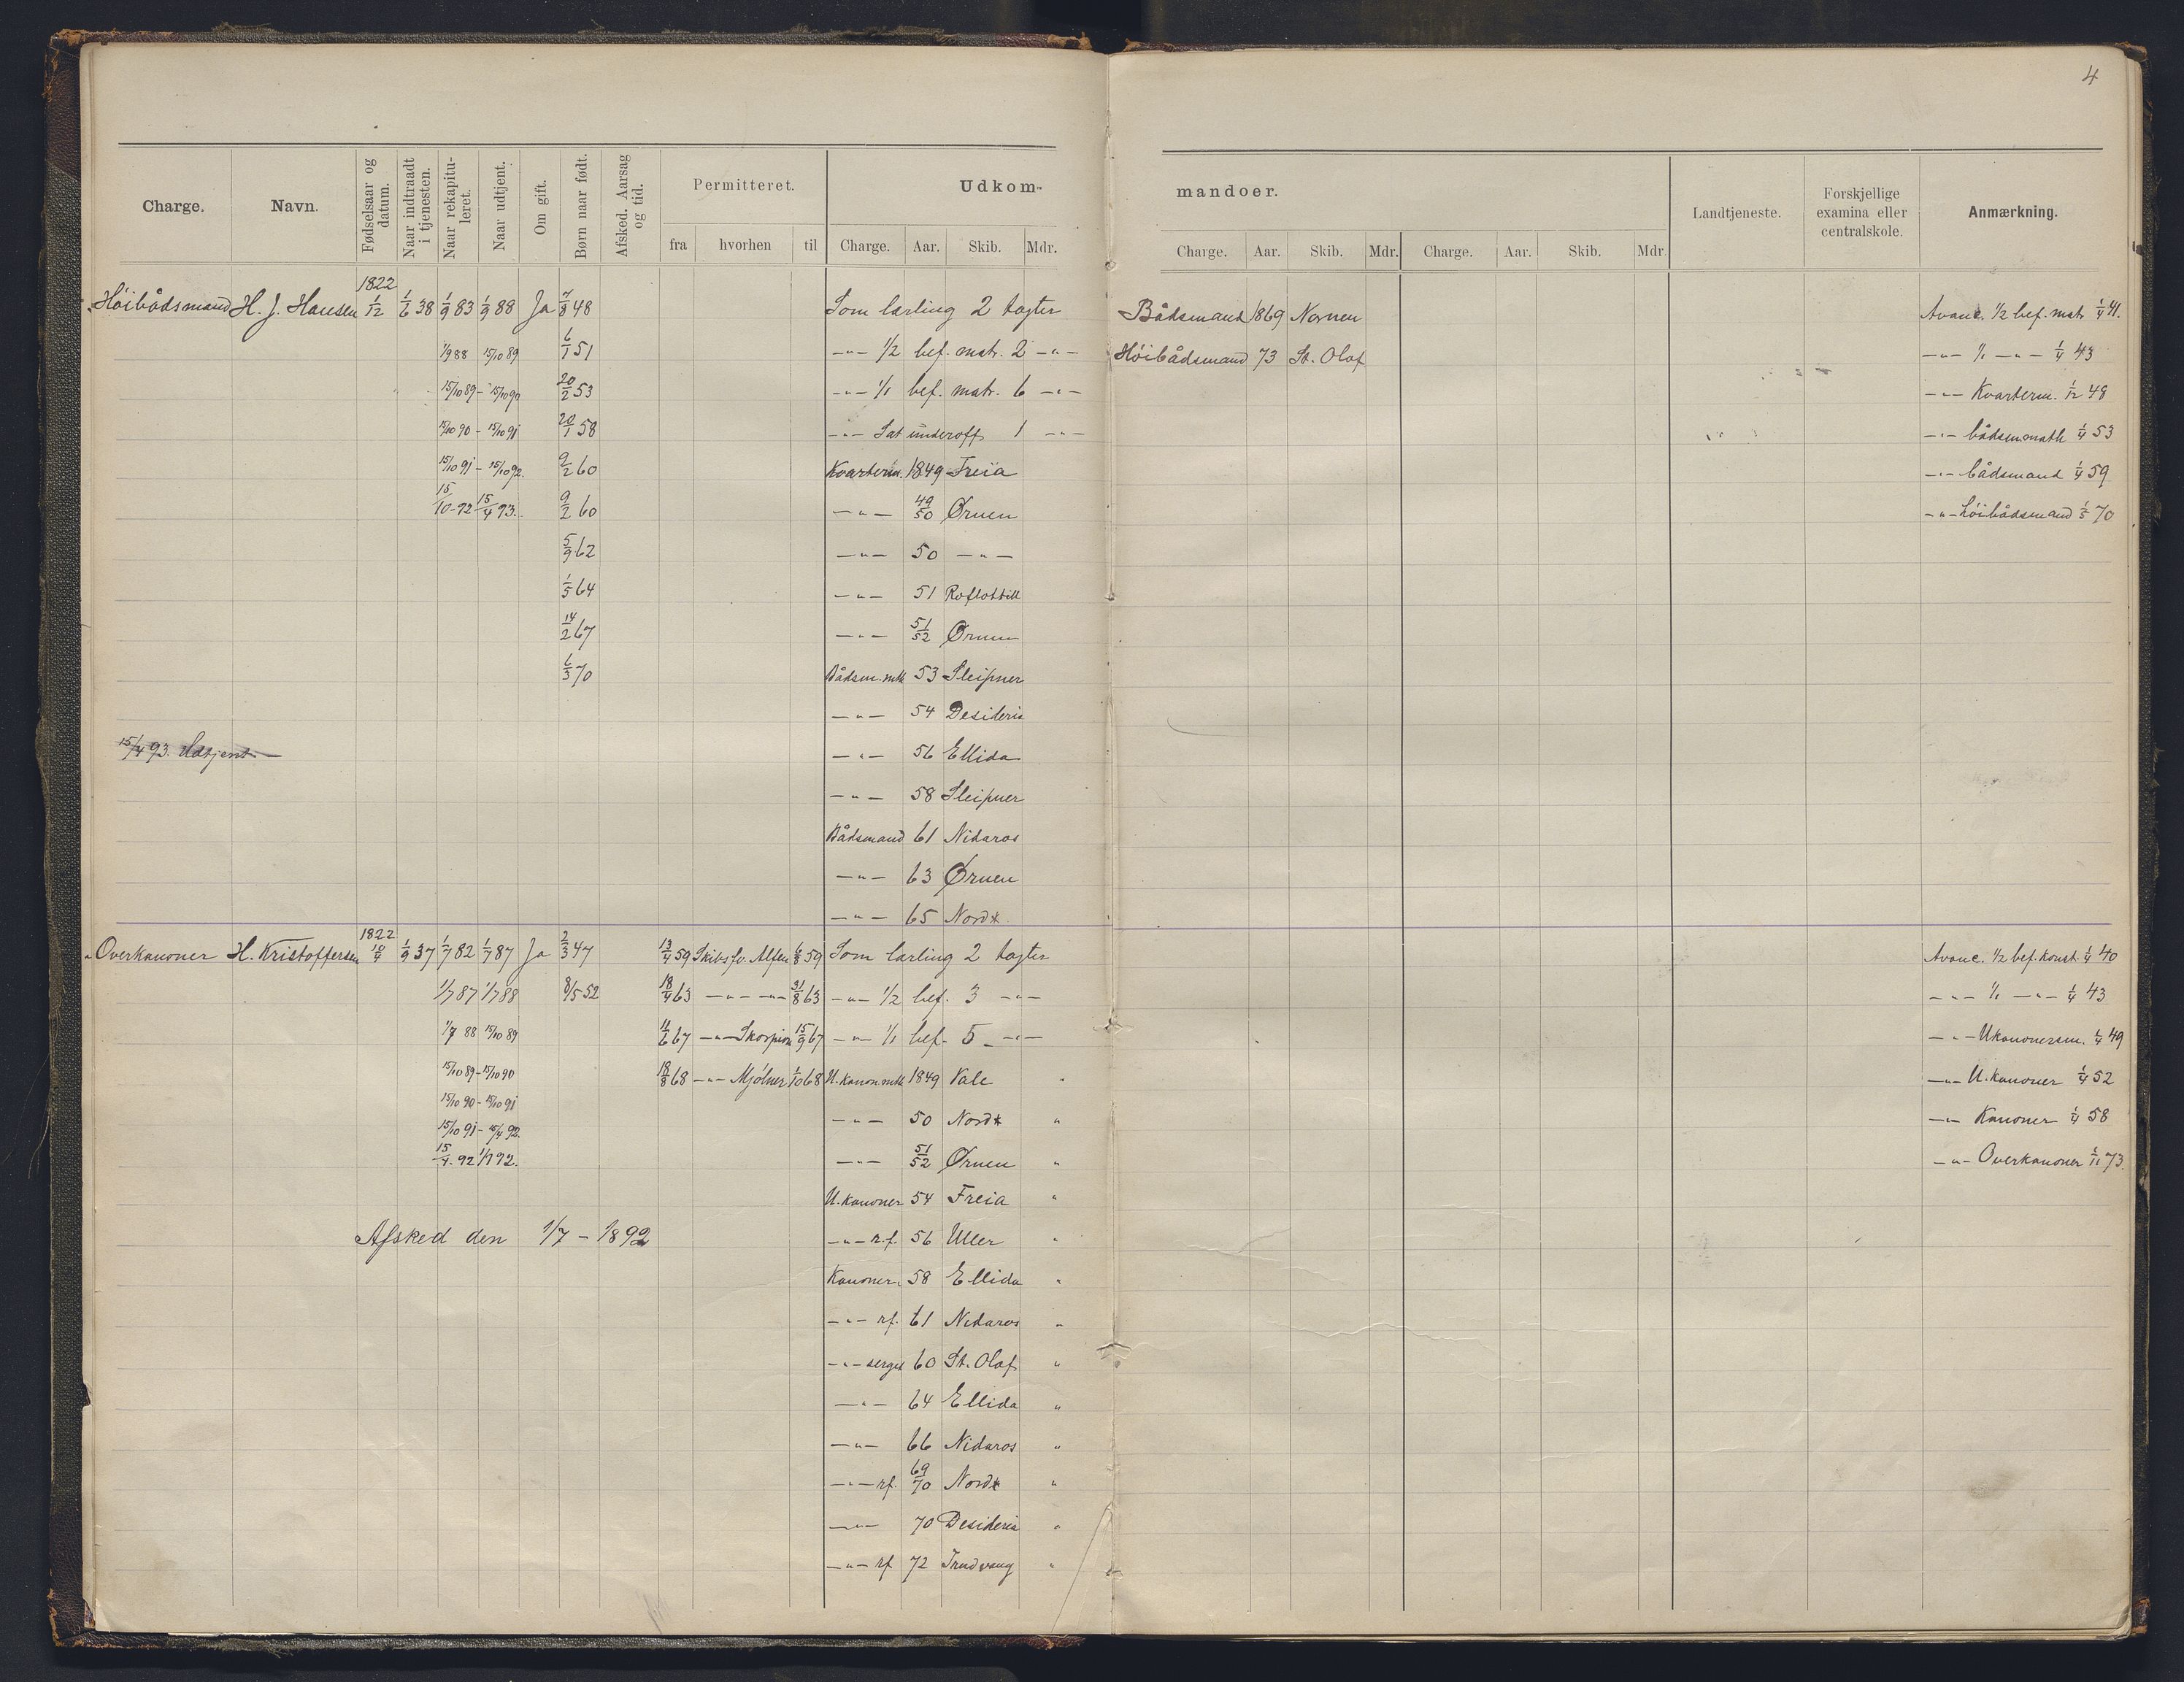 4
Charge. Navn. Fødselsaar og datum. Naar indtraadt i tjenesten. Naar rekapitu-leret. Naar udtjent. Om gift. Børn naar født. Afsked. Aarsag og tid. Permitteret. Udkom-
fra hvorhen til Charge. Aar. Skib. Mdr.
mandoer. Landtjeneste. Forskjellige examina eller centralskole. Anmærkning.
Charge. Aar. Skib. Mdr. Charge. Aar. Skib. Mdr.
1822
Høibådsmand H. J. Hansen 1/12 1/6 38 1/9 83 1/9 88 Ja 7/8 48 Som lærling 2 togter Bådsmand 1869 Nornen Avanc. 1/2 bef. matr 1/4 41.
1/9 88 15/10 89 6/1 51 -"- 1/2 bef. matr. 2 -"- Høibådsmand 73 St. Olaf -"- 1/1 -"- 1/4 43
15/10 89 - 15/10 90 20/2 53 -"- 1/1 bef. matr. 6 -"- -"- Kvarterm. 1/12 48
15/10 90 - 15/10 91 20/1 58 -"- Sat underoff. 1 -"- -"- bådsmnmath 1/4 53
15/10 91 - 15/10 92. 9/2 60 Kvarterm. 1849 Freia -"- bådsmand 1/4 59
15/10-92 15/4 93. 9/2 60 -"- 49/50 Ørnen -"- høibådsmand 1/5 70
5/9 62 -"- 50 -"-
1/5 64 -"- 51 Roflottill
14/2 67 -"- 51/52 Ørnen
6/3 70 Bådsm. mth 53 Sleipner
-"- 54 Desideria
15/4 93. Udtjent.- -"- 56 Ellida
-"- 58 Sleipner
Bådsmand 61 Nidaros
-"- 63 Ørnen
-"- 65 Nord*
1822
Overkanoner H. Kristoffersen 10/4 1/9 37 1/7 82 1/7 87 Ja 2/3 47 13/4 59 Skibsfv. Alfen 6/8 59 Som lærling 2 togter Avanc. 1/2 bef. konst. 1/4 40
1/7 87 1/7 88 8/5 52 18/4 63 -"- -"- 31/8 63 -"- 1/2 bef. 3 -"- -"- 1/1 -"- 1/4 43
1/7 88 15/10 89 11/6 67 -"- Skorpion 15/9 67 -"- 1/1 bef. 5 -"- -"- Ukanonersm. 1/4 49
15/10 89 - 15/10 90 18/8 68 -"- Mjølner 1/10 68 U. kanon mth 1849 Vale " -"- U. kanoner 1/4 52
15/10 90 - 15/10 91
-"- 50 Nord* " -"- Kanoner 1/4 58
15/10 91 - 15/4 92.
15/4. 92 1/7 92. -"- 51/52 Ørnen " -"- Overkanoner 1/11 73.
U. kanoner 54 Freia "
Afsked den 1/7 - 1892 -"- rf. 56 Uller "
Kanoner 58 Ellida "
-"- rf. 61 Nidaros "
-"- 60 St. Olaf "
-"- 64 Ellida "
-"- 66 Nidaros "
-"- rf. 69/70 Nord* "
-"- 70 Desideria "
-"- rf 72 Trudvang "